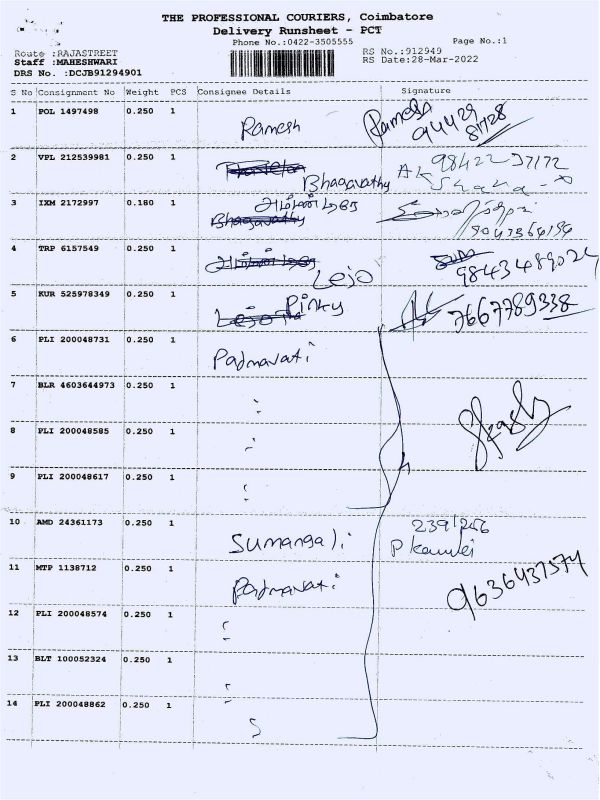 THE PROFESSIONAL COURIERS, Coimbatore
Delivery Runsheet - PCT
Phone No.:0422-3505555
Page No.:1
Route :RAJASTREET
RS No.:912949
Staff :MAHESHWARI
RS Date:28-Mar-2022
DRS No. :DCJB91294901
S No Consignment No Weight PCS Consignee Details Signature
1 POL 1497498 0.250 1 Ramesh Ramesh
94429
81728
2 VPL 212539981 0.250 1 Bhagavathy 98422 37172
3 IXM 2172997 0.180 1 Bhagavathy
4 TRP 6157549 0.250 1 Lejo
5 KUR 525978349 0.250 1 Lejo Pinky 7667789338
6 PLI 200048731 0.250 1 Padmavati
7 BLR 4603644973 0.250 1
8 PLI 200048585 0.250 1
9 PLI 200048617 0.250 1
10 AMD 24361173 0.250 1 Sumangali
11 MTP 1138712 0.250 1 Padmavati 9636437574
12 PLI 200048574 0.250 1
13 BLT 100052324 0.250 1
14 PLI 200048862 0.250 1